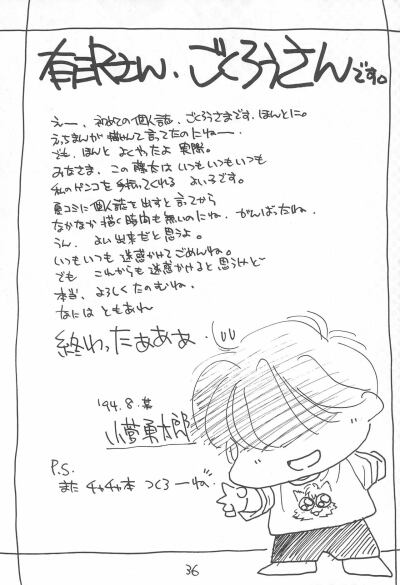 有吉さん、ごくろうさんです。
えー、初めての個人誌、ごくろうさまです。ほんとに。
えっちまんが描かんて言ってたのにねー。
でも、ほんと よくやったよ 実際。
みなさま、この藤太は いつもいつもいつも
私のゲンコを 手伝ってくれる よい子です。
夏コミに個人誌を出すと言ってから
なかなか描く時間も無いのにね、がんばったね。
うん、よい出来だと思うよ。
いつもいつも 迷惑かけてごめんね。
でも これからも迷惑かけると思うけど〜
本当、よろしくたのむね。
なにはともあれ〜
終わったぁぁぁ.
'94.8.
小菅勇太郎
P.S.
また チャチャ本 つくろーね。
36